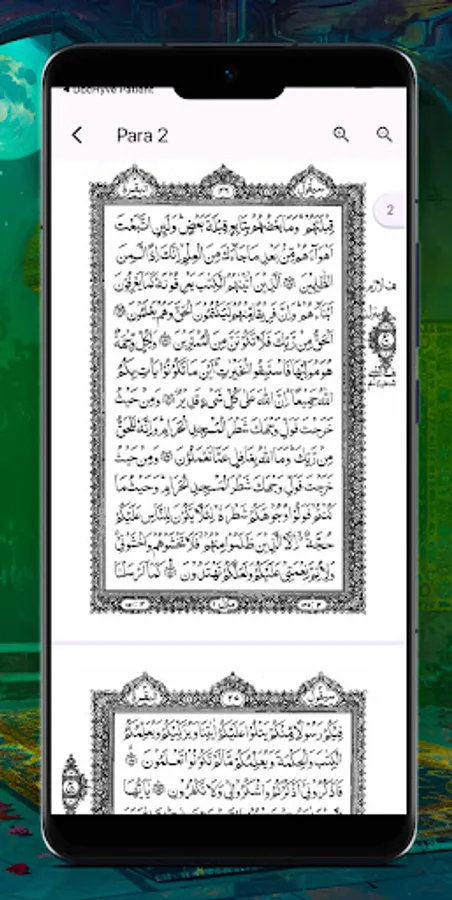 DocHyve Patient
Para 2
2
سيقول
البقرة
قِبْلَتَهُمْ وَمَا بَعْضُهُمْ بِتَابِعٍ قِبْلَةَ بَعْضٍ وَلَئِنِ اتَّبَعْتَ
اَهْوَآءَهُمْ مِّنْ بَعْدِ مَا جَآءَكَ مِنَ الْعِلْمِ اِنَّكَ اِذًا لَّمِنَ
الظّٰلِمِيْنَ اَلَّذِيْنَ اٰتَيْنٰهُمُ الْكِتٰبَ يَعْرِفُوْنَهٗ كَمَا يَعْرِفُوْنَ
اَبْنَآءَهُمْ وَاِنَّ فَرِيْقًا مِّنْهُمْ لَيَكْتُمُوْنَ الْحَقَّ وَهُمْ يَعْلَمُوْنَ
اَلْحَقُّ مِنْ رَّبِّكَ فَلَا تَكُوْنَنَّ مِنَ الْمُمْتَرِيْنَ وَلِكُلٍّ وِّجْهَةٌ
هُوَ مُوَلِّيْهَا فَاسْتَبِقُوا الْخَيْرٰتِ اَيْنَ مَا تَكُوْنُوْا يَاْتِ بِكُمُ
اللّٰهُ جَمِيْعًا اِنَّ اللّٰهَ عَلٰى كُلِّ شَيْءٍ قَدِيْرٌ وَمِنْ حَيْثُ
خَرَجْتَ فَوَلِّ وَجْهَكَ شَطْرَ الْمَسْجِدِ الْحَرَامِ وَاِنَّهٗ لَلْحَقُّ
مِنْ رَّبِّكَ وَمَا اللّٰهُ بِغَافِلٍ عَمَّا تَعْمَلُوْنَ وَمِنْ حَيْثُ
خَرَجْتَ فَوَلِّ وَجْهَكَ شَطْرَ الْمَسْجِدِ الْحَرَامِ وَحَيْثُ مَا
كُنْتُمْ فَوَلُّوْا وُجُوْهَكُمْ شَطْرَهٗ لِئَلَّا يَكُوْنَ لِلنَّاسِ عَلَيْكُمْ
حُجَّةٌ اِلَّا الَّذِيْنَ ظَلَمُوْا مِنْهُمْ فَلَا تَخْشَوْهُمْ وَاخْشَوْنِيْ
وَلِاُتِمَّ نِعْمَتِيْ عَلَيْكُمْ وَلَعَلَّكُمْ تَهْتَدُوْنَ كَمَآ اَرْسَلْنَا
سيقول
البقرة
فِيْكُمْ رَسُوْلًا مِّنْكُمْ يَتْلُوْا عَلَيْكُمْ اٰيٰتِنَا وَيُزَكِّيْكُمْ وَيُعَلِّمُكُمُ
الْكِتٰبَ وَالْحِكْمَةَ وَيُعَلِّمُكُمْ مَّا لَمْ تَكُوْنُوْا تَعْلَمُوْنَ
فَاذْكُرُوْنِيْٓ اَذْكُرْكُمْ وَاشْكُرُوْا لِيْ وَلَا تَكْفُرُوْنِ يٰٓاَيُّهَا